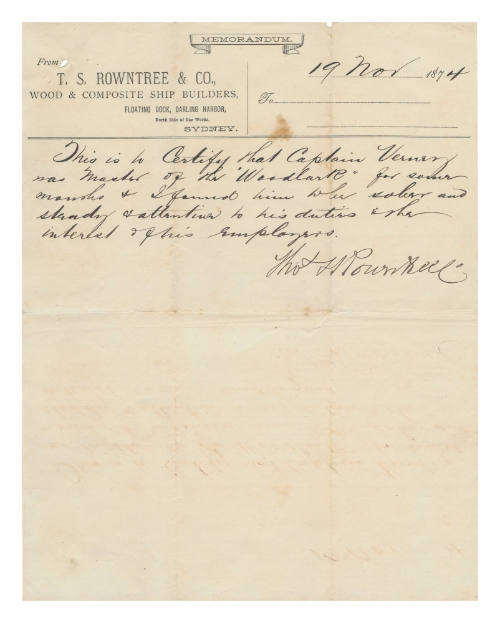 MEMORANDUM.
From
T. S. ROWNTREE & CO.,
WOOD & COMPOSITE SHIP BUILDERS,
FLOATING DOCK, DARLING HARBOR,
North Side of Gas Works,
SYDNEY.
19 Nov 1874
To
This is to Certify that Captain Verney
was Master of the "Woodlark" for some
months & I found him to be sober and
steady & attentive to his duties & the
interest of his Employers.
Thos S Rowntree